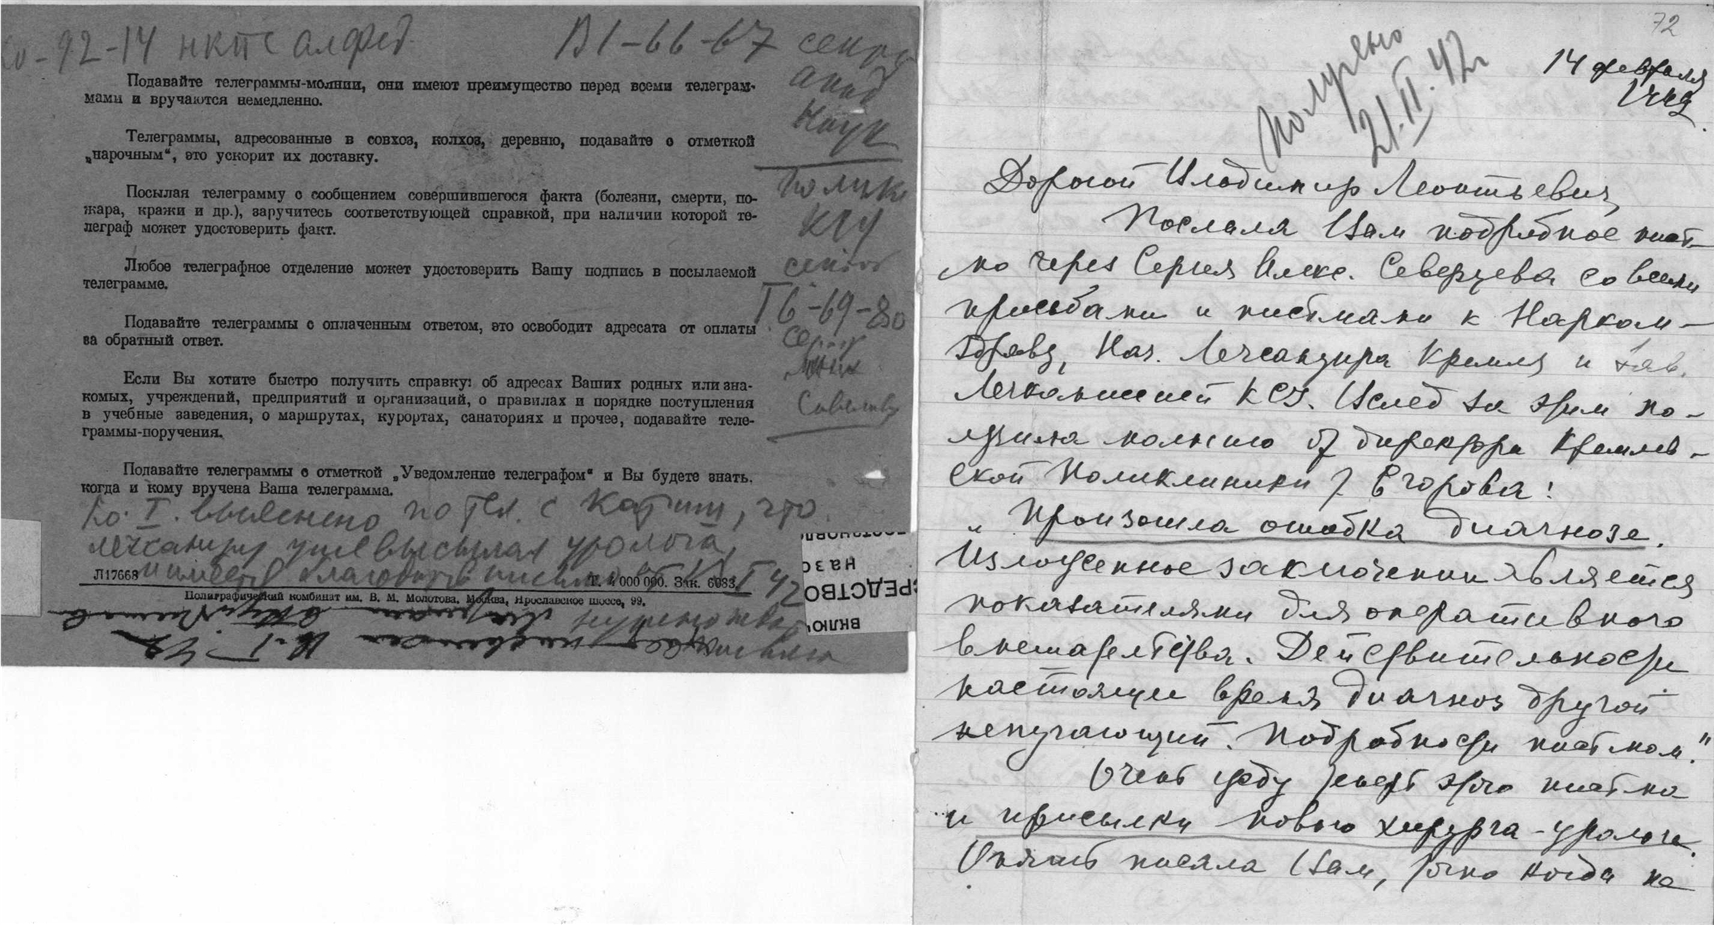 -92-14 НКПС алфед.
В1-66-67 секр
акад
Наук
Подавайте телеграммы-молнии, они имеют преимущество перед всеми телеграм-
мами и вручаются немедленно.
Телеграммы, адресованные в совхоз, колхоз, деревню, подавайте с отметкой
„нарочным“, это ускорит их доставку.
Посылая телеграмму с сообщением совершившегося факта (болезни, смерти, по-
жара, кражи и др.), заручитесь соответствующей справкой, при наличии которой те-
леграф может удостоверить факт.
Любое телеграфное отделение может удостоверить Вашу подпись в посылаемой
телеграмме.
Подавайте телеграммы с оплаченным ответом, это освободит адресата от оплаты
за обратный ответ.
Если Вы хотите быстро получить справку: об адресах Ваших родных или зна-
комых, учреждений, предприятий и организаций, о правилах и порядке поступления
в учебные заведения, о маршрутах, курортах, санаториях и прочее, подавайте теле-
граммы-поручения.
Подавайте телеграммы с отметкой „Уведомление телеграфом“ и Вы будете знать,
когда и кому вручена Ваша телеграмма.
Поликл
КСУ
Г6-69-80
выяснено по тел. с, что
лечсанупр уже высылал уролога,
Л17668
Т. 4 000 000. Зак. 6683.
Полиграфический комбинат им. В. М. Молотова. Москва, Ярославское шоссе, 99.
РЕДСТВО
НАЗ
ВКЛЮ
72
Получено
21.II.42г
14 февраля
1942.
Дорогой Владимир Леонтьевич,
Послала Вам подробное пись-
мо через Сергея Алекс. Северцева со всеми
просьбами и письмами к Нарком-
здраву, Нач. Лечсанупра Кремля и зав.
Лечкомиссией КСУ. Вслед за этим по-
лучила молнию от директора Кремлев-
ской Поликлиники т. Егорова:
„Произошла ошибка диагнозе.
Изложенное заключении является
показателями для оперативного
вмешательства. Действительности
настоящее время диагноз другой
непугающий. Подробности письмом.“
Очень жду теперь этого письма
и присылки нового хирурга-уролога.
Опять писала Вам, точно когда не